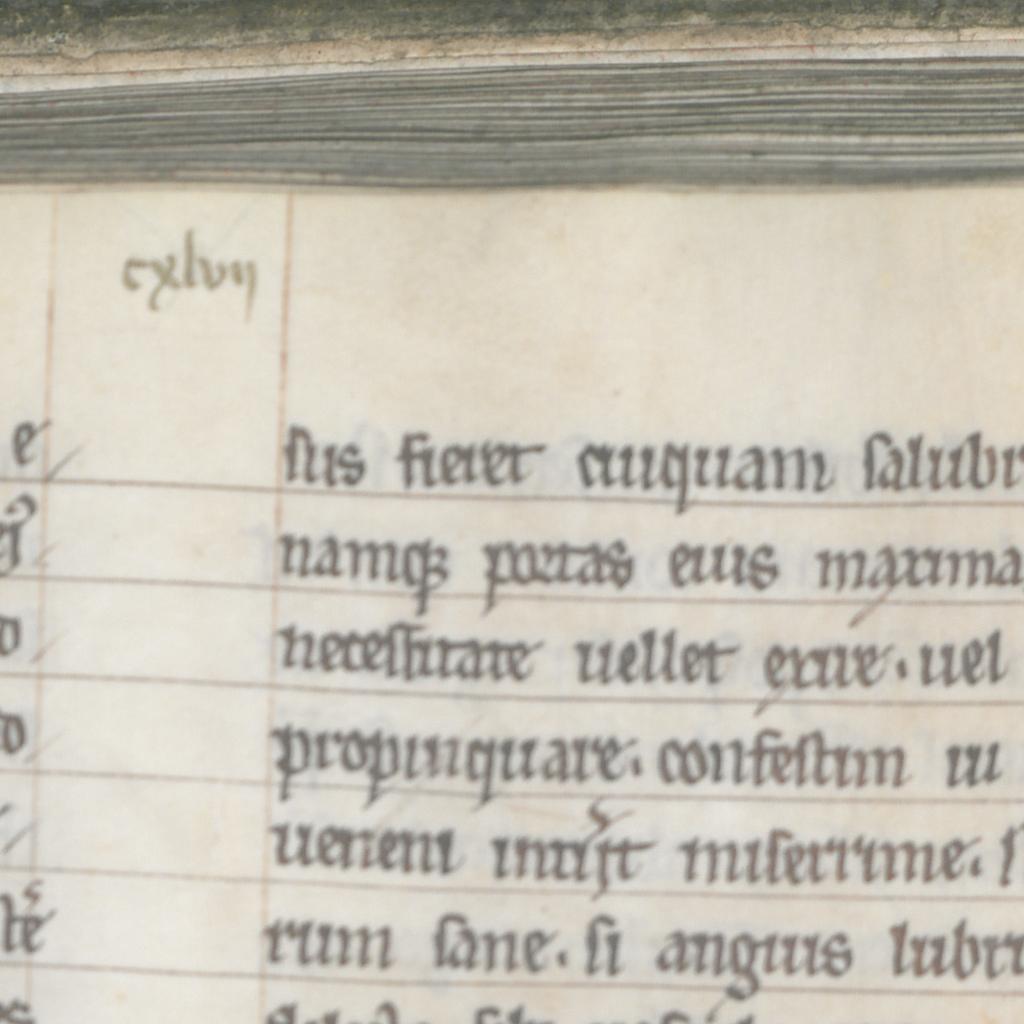 cxlvij
e
sus fieret cuiquam salubr
namq; portas eius maxima
o
necessitate uellet exire. uel
o
propinquare. confestim ui
ueneni
miserrime. s
rum sane. si anguis lubri